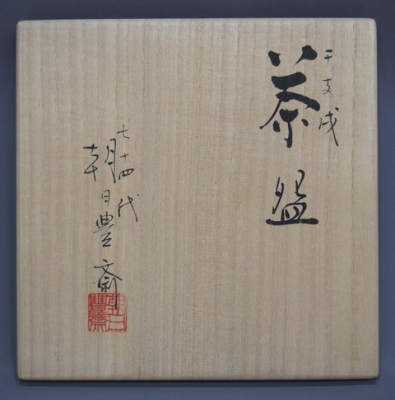 干支戌
茶盌
十四代
朝日豊斎